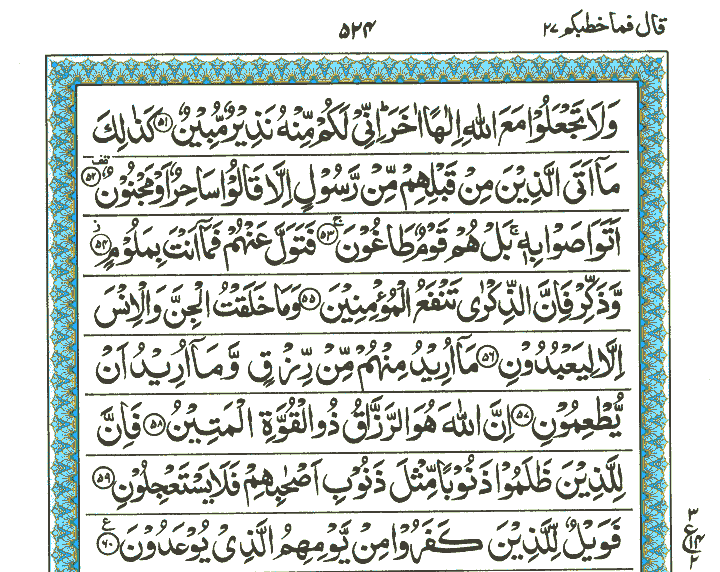 قال فما خطبكم ۲۷ ۵۲۴
وَلَا تَجْعَلُوْا مَعَ اللّٰهِ اِلٰهًا اٰخَرَ ؕ اِنِّیْ لَكُمْ مِّنْهُ نَذِیْرٌ مُّبِیْنٌ ۵۱ كَذٰلِكَ
مَاۤ اَتَی الَّذِیْنَ مِنْ قَبْلِهِمْ مِّنْ رَّسُوْلٍ اِلَّا قَالُوْا سَاحِرٌ اَوْ مَجْنُوْنٌ ۵۲ قف
اَتَوَاصَوْا بِهٖ ۚ بَلْ هُمْ قَوْمٌ طَاغُوْنَ ۵۳ ج فَتَوَلَّ عَنْهُمْ فَمَاۤ اَنْتَ بِمَلُوْمٍ ۵۴ ز
وَّذَكِّرْ فَاِنَّ الذِّكْرٰی تَنْفَعُ الْمُؤْمِنِیْنَ ۵۵ وَمَا خَلَقْتُ الْجِنَّ وَالْاِنْسَ
اِلَّا لِیَعْبُدُوْنِ ۵۶ مَاۤ اُرِیْدُ مِنْهُمْ مِّنْ رِّزْقٍ وَّمَاۤ اُرِیْدُ اَنْ
یُّطْعِمُوْنِ ۵۷ اِنَّ اللّٰهَ هُوَ الرَّزَّاقُ ذُو الْقُوَّةِ الْمَتِیْنُ ۵۸ فَاِنَّ
لِلَّذِیْنَ ظَلَمُوْا ذَنُوْبًا مِّثْلَ ذَنُوْبِ اَصْحٰبِهِمْ فَلَا یَسْتَعْجِلُوْنِ ۵۹
فَوَیْلٌ لِّلَّذِیْنَ كَفَرُوْا مِنْ یَّوْمِهِمُ الَّذِیْ یُوْعَدُوْنَ ۶۰ ع
۳
ع ۱۴
۲